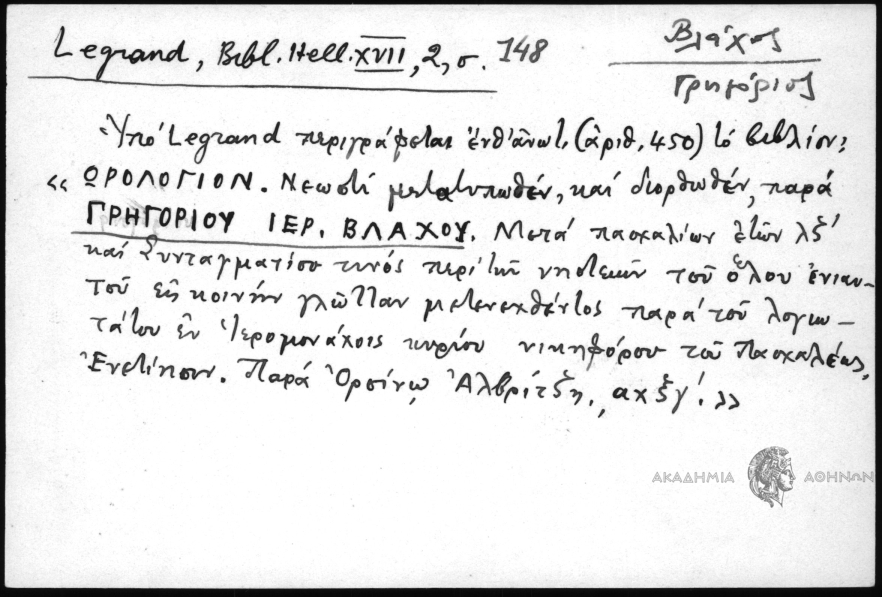 Legrand, Bibl. Hell. XVII, 2, σ. 148
Βλάχος
Γρηγόριος
Ὑπό Legrand περιγράφεται ἐνθ' ἀνωτ. (ἀριθ. 450) τό βιβλίον:
« ΩΡΟΛΟΓΙΟΝ. Νεωστί μετατυπωθέν, καί διορθωθέν, παρά
ΓΡΗΓΟΡΙΟΥ ΙΕΡ. ΒΛΑΧΟΥ. Μετά πασχαλίων ἐτῶν λξ'
καί Συνταγματίου τινός περί τῶν νηστειῶν τοῦ ὅλου ἐνιαυ-
τοῦ εἰς κοινήν γλῶτταν μετενεχθέντος παρά τοῦ λογιω-
τάτου ἐν Ἱερομονάχοις κυρίου νικηφόρου τοῦ Πασχαλέως,
Ἐνετίησιν. Παρά Ὀρσίνῳ Ἀλβρίτζη, αχξγ'. »
ΑΚΑΔΗΜΙΑ ΑΘΗΝΩΝ